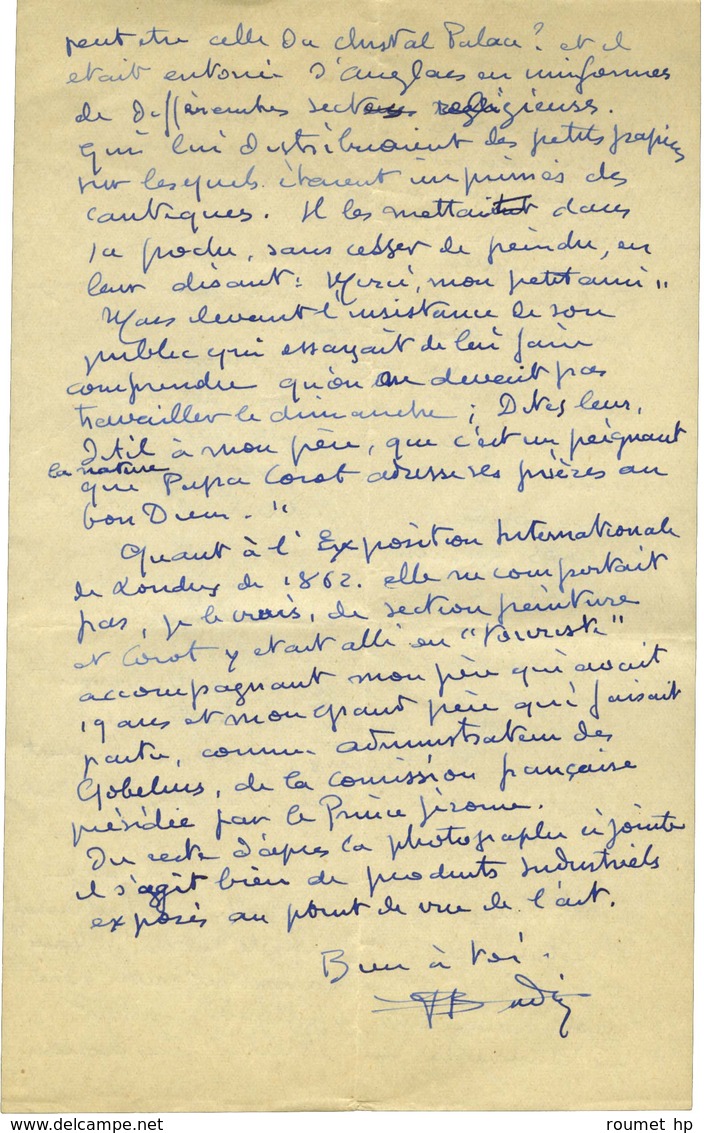 peut etre celle du Christal Palace ? et il
etait entouré d'anglaes en uniformes
de differentes sectes religieuses.
qui lui distribuaient des petits papiers
sur lesquels étaient imprimés des
cantiques. Il les mettait dans
sa poche, sans cesser de peindre, en
leur disant : Merci, mon petit ami "
Mais devant l'insistance de son
public qui essayait de lui faire
comprendre qu'on ne devait pas
travailler le dimanche ; Dites leur,
dit il à mon père, que c'est en peignant
la nature
que Papa Corot adresse ses prières au
bon Dieu. "
Quant à l' Exposition Internationale
de Londres de 1862. elle ne comportait
pas, je le crois, de section peinture
et Corot y etait allé en "touriste"
accompagnant mon père qui avait
19 ans et mon grand père qui faisait
partie, comme administrateur des
Gobelins, de la comission française
présidée par le Prince Jérome.
Du reste d'apres la photographie ci jointe
il s'agit bien de produits Industriels
exposés au point de vue de l'art.
Bien à toi.
roumet hp